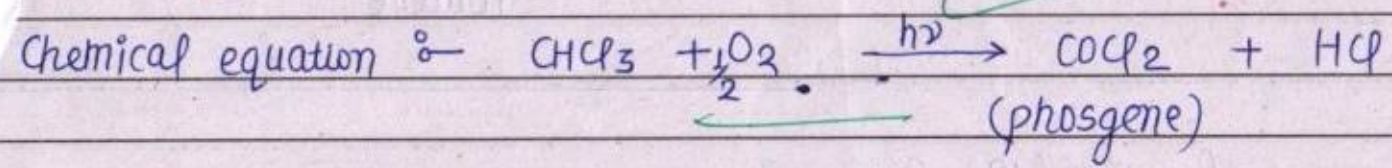 Chemical equation :- CHCl3 + 1/2 O2 . hν → COCl2 + HCl
(phosgene)